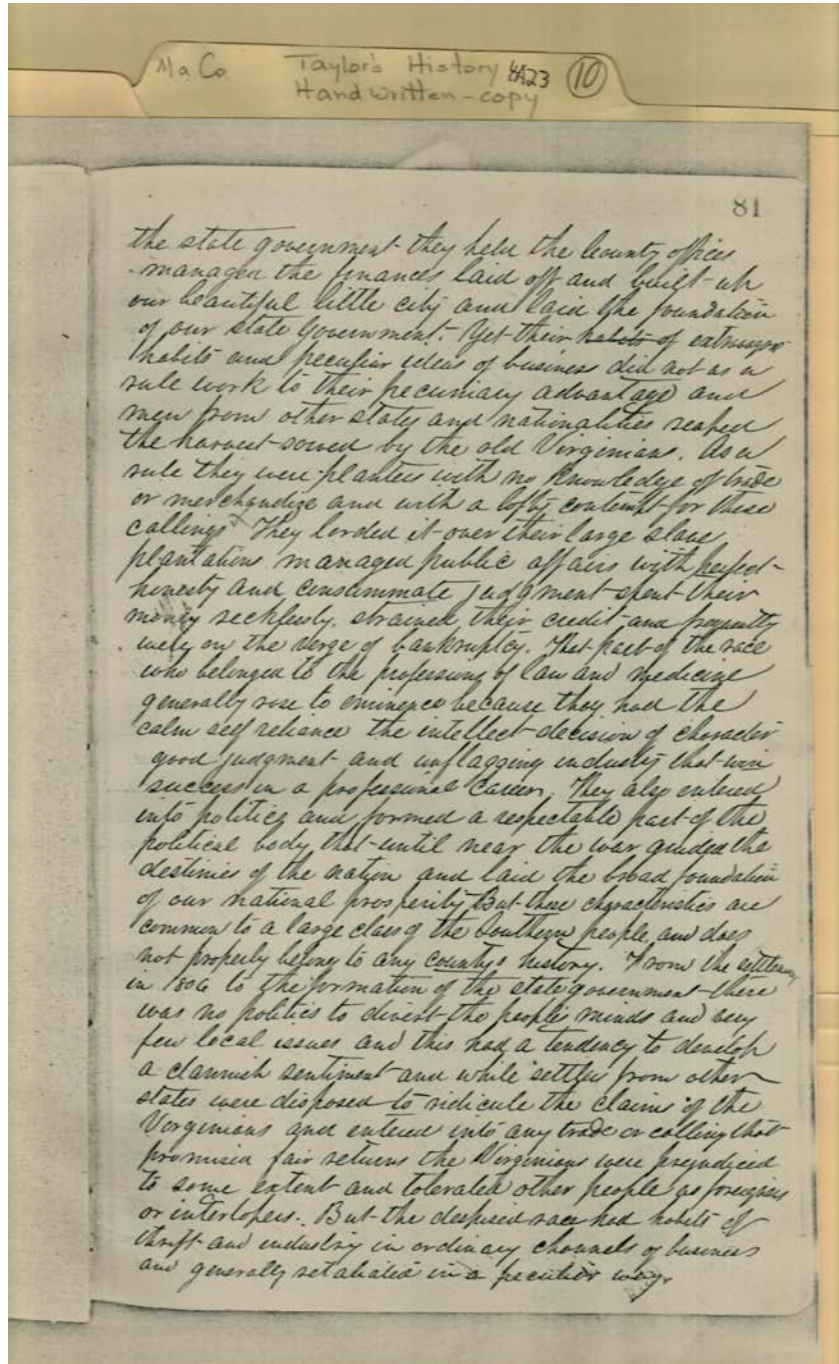 Ma Co. Taylor's History 4A23 10
Handwritten-copy
81
the state government they held the County offices
managed the finances laid off and built up
our beautiful little city and laid the foundation
of our state Government. Yet their habits of extravagant
habits and peculiar ideas of business did not as a
rule work to their pecuniary advantage and
men from other states and nationalities reaped
the harvest sowed by the old Virginians. As a
rule they were planters with no knowledge of trade
or merchandize and with a lofty contempt for these
callings They lorded it over their large slave
plantations managed public affairs with perfect
honesty and consummate judgment spent their
money recklessly, strained their credit and frequently
were on the verge of bankruptcy. That part of the race
who belonged to the professions of law and medicine
generally rose to eminence because they had the
calm self reliance the intellect decision of character
good judgment and unflagging industry that win
success in a professional career. They also entered
into politics and formed a respectable part of the
political body that until near the war guided the
destinies of the nation and laid the broad foundation
of our national prosperity But these characteristics are
common to a large class of the Southern people, and does
not properly belong to any countys history. From the settlement
in 1806 to the formation of the state government there
was no politics to divert the peoples minds and very
few local issues and this had a tendency to develop
a clannish sentiment and while settlers from other
states were disposed to ridicule the claims of the
Virginians and entered into any trade or calling that
promised fair returns the Virginians were prejudiced
to some extent and tolerated other people as foreigners
or interlopers. But the despised race had habits of
thrift and industry in ordinary channels of business
and generally retaliated in a peculiar way.